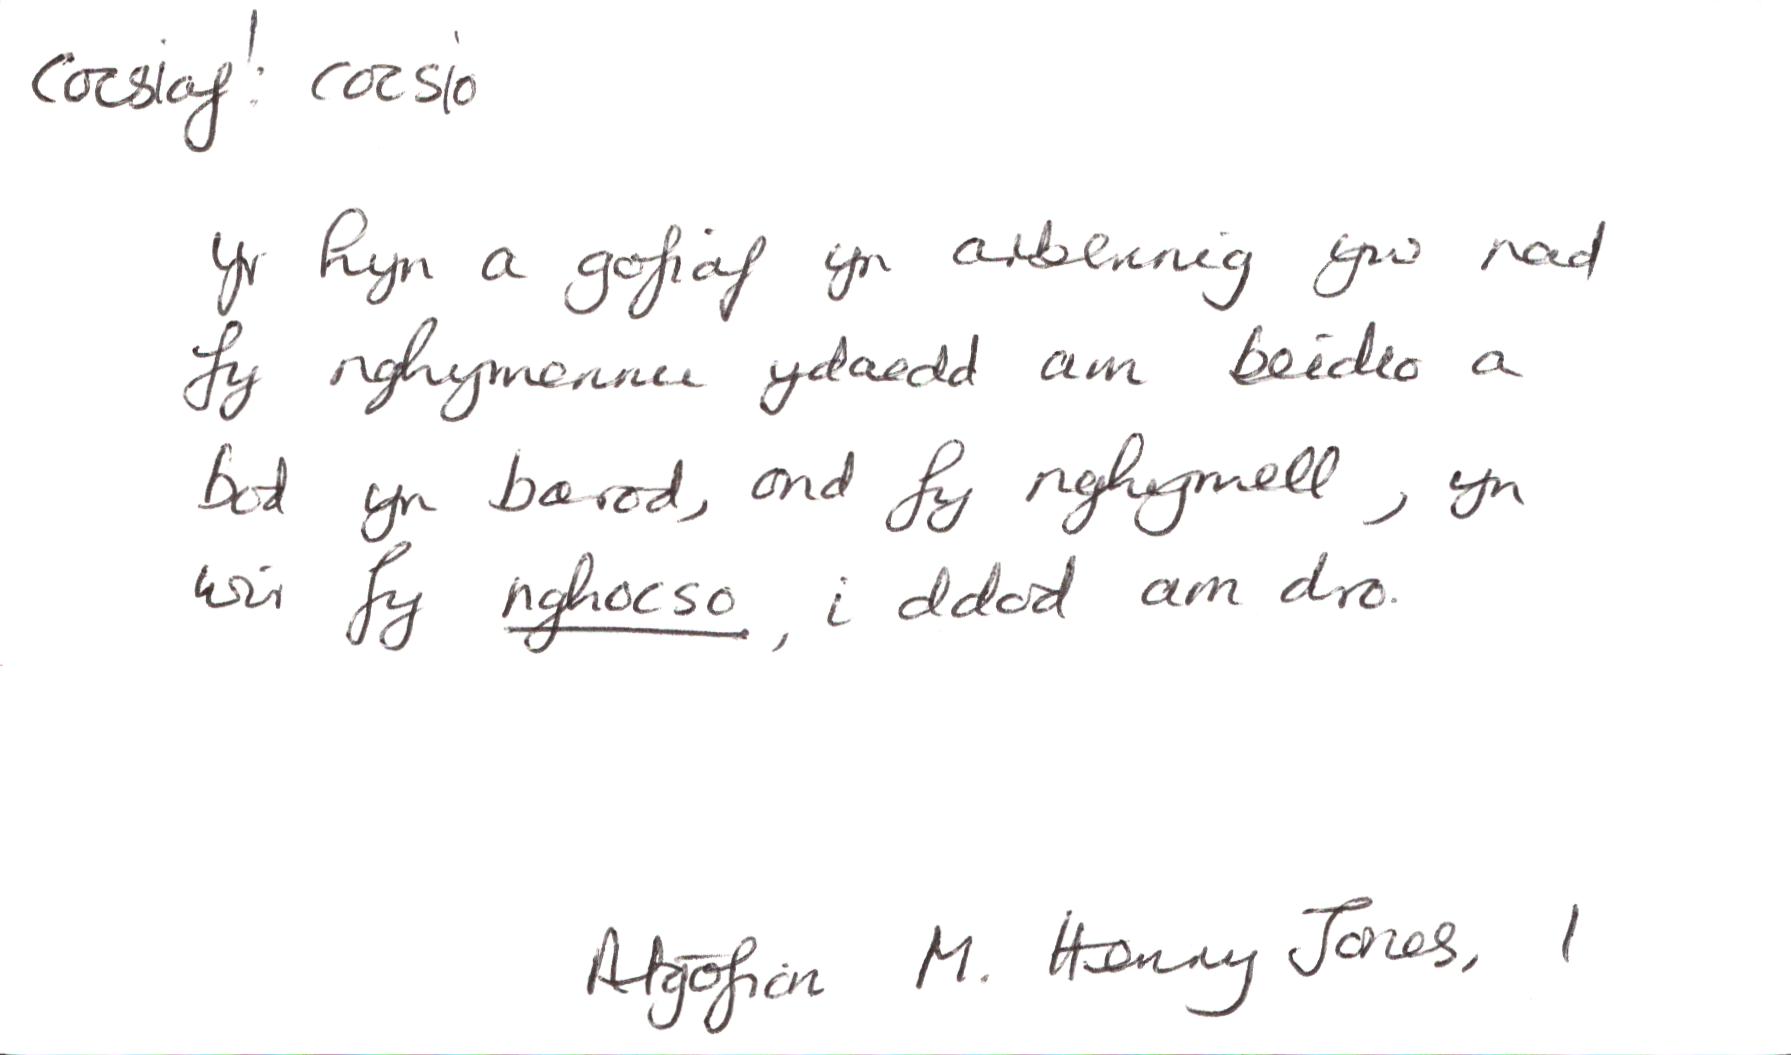 cocsiaf¹: cocsio
Yr hyn a gofiaf yn arbennig yw nad
fy nghymennu ydoedd am beidio a
bod yn barod, ond fy nghymell, yn
wir fy nghocso, i ddod am dro.
Atgofion M. Henry Jones, 1